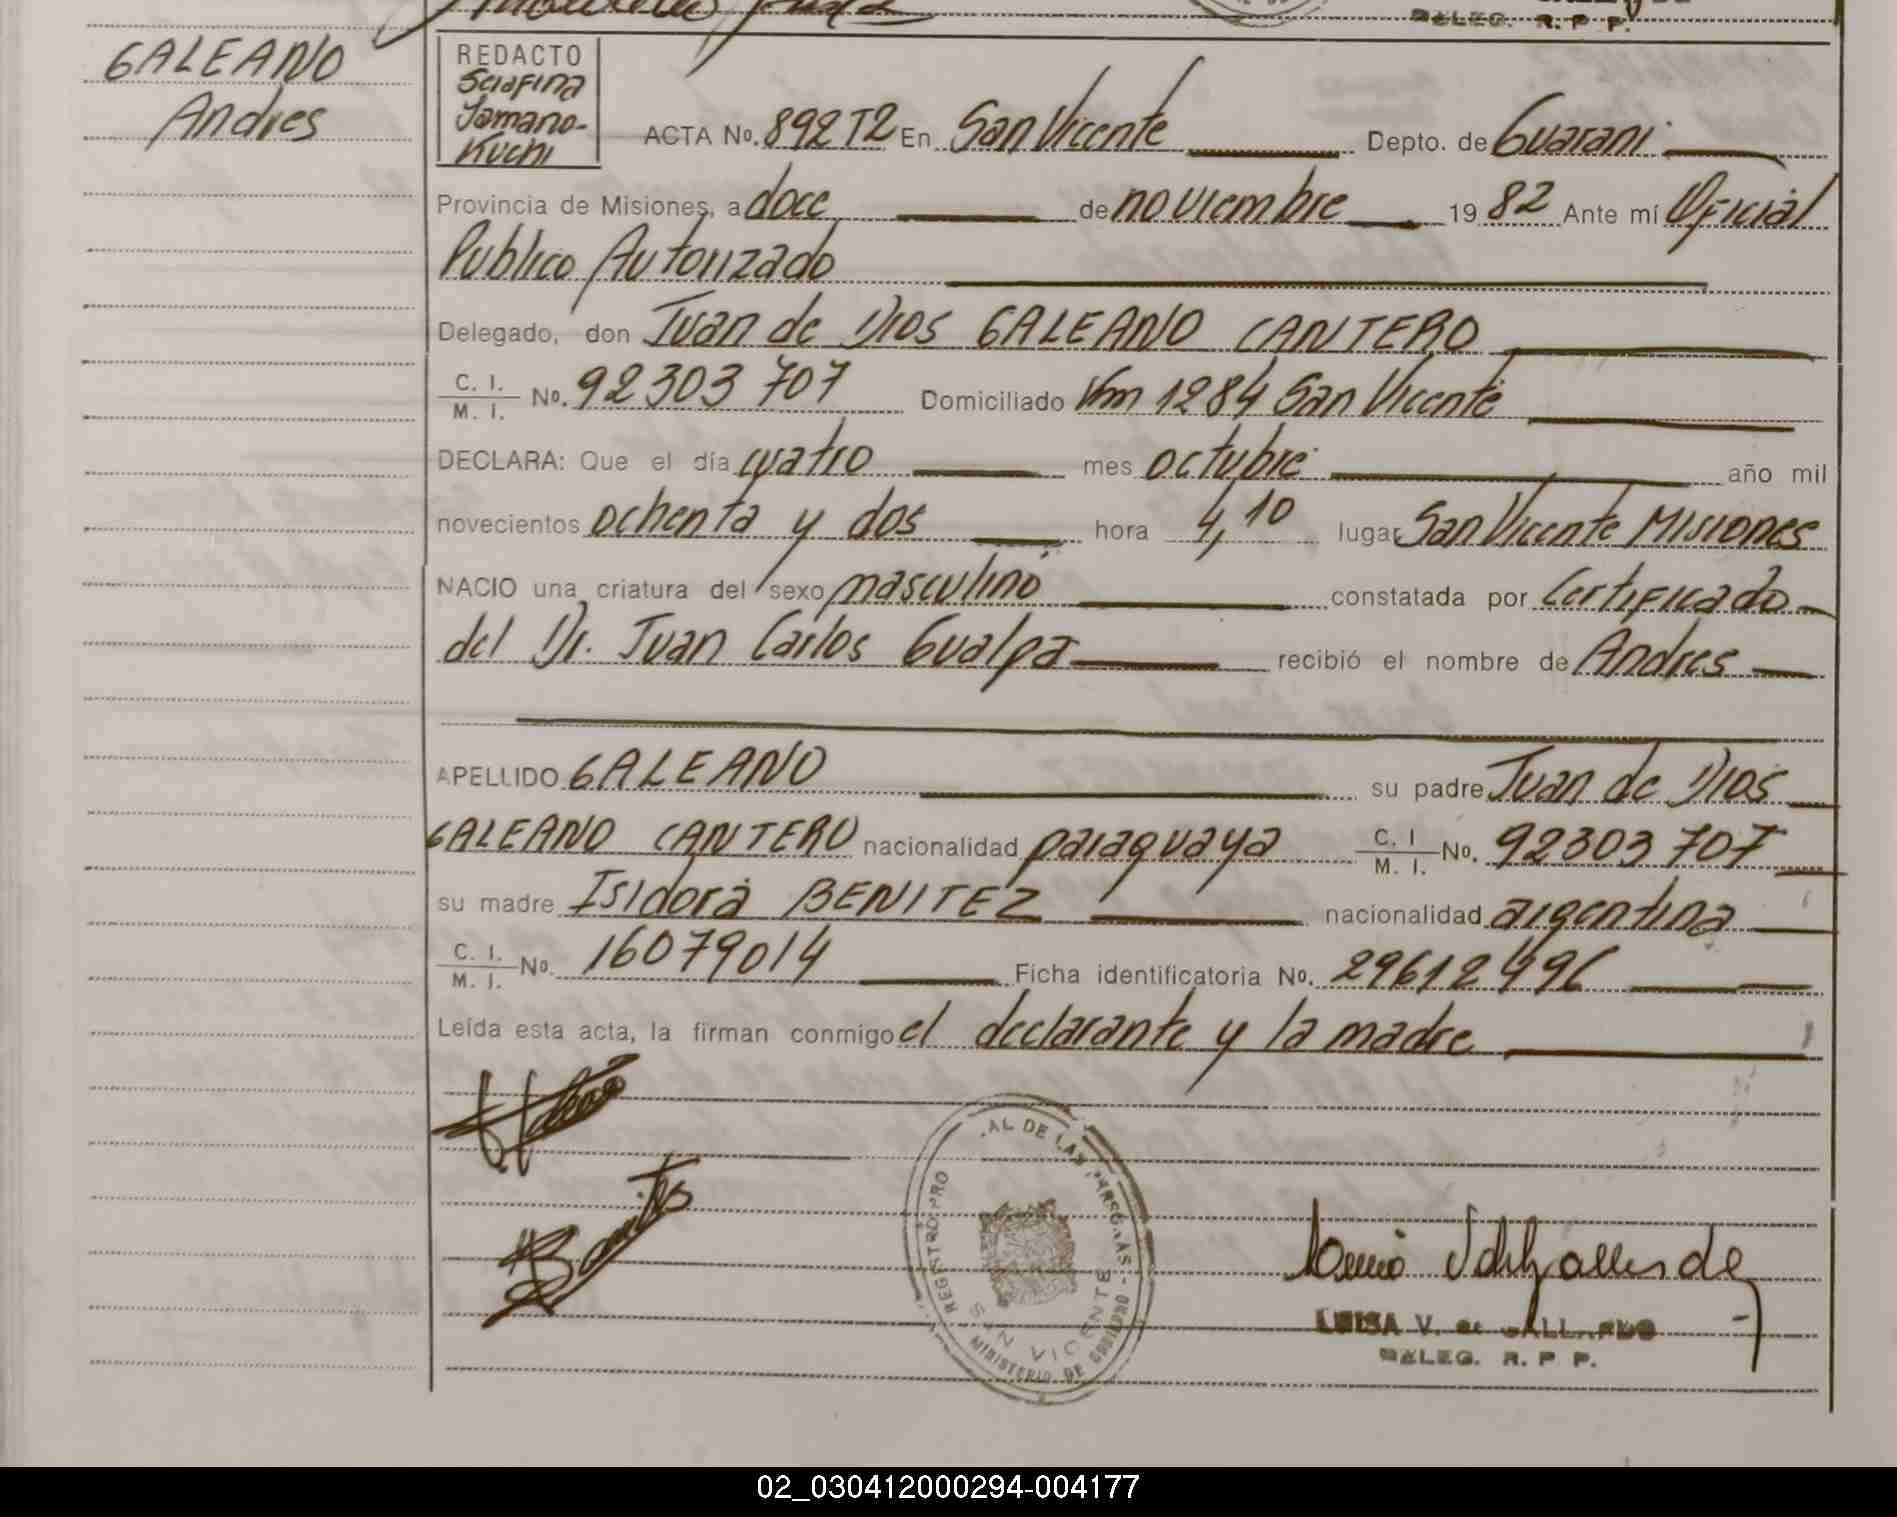 DELEG. R. P. P.
GALEANO
Andres
REDACTO
Serafina
Yamano-
Kuchi
ACTA No. 892 T2 En San Vicente Depto. de Guarani
Provincia de Misiones, a doce de noviembre 1982 Ante mí Oficial
Publico Autorizado
Delegado, don Juan de Dios GALEANO CANTERO
C. I. / M. I. No. 92303707 Domiciliado Km 1284 San Vicente
DECLARA: Que el día cuatro mes octubre año mil
novecientos ochenta y dos hora 4,10 lugar San Vicente Misiones
NACIO una criatura del sexo masculino constatada por Certificado
del Dr. Juan Carlos Gualpa recibió el nombre de Andres
APELLIDO GALEANO su padre Juan de Dios
GALEANO CANTERO nacionalidad paraguaya C. I / M. I. No. 92303707
su madre Isidora BENITEZ nacionalidad argentina
C. I. / M. I. No. 16079014 Ficha identificatoria No. 29612496
Leída esta acta, la firman conmigo el declarante y la madre
Benites
REGISTRO PRO AL DE LAS PERSONAS -
SAN VICENTE
MINISTERIO DE GOBIERNO
LUISA V. de GALLARDO
DELEG. R. P. P.
02_030412000294-004177